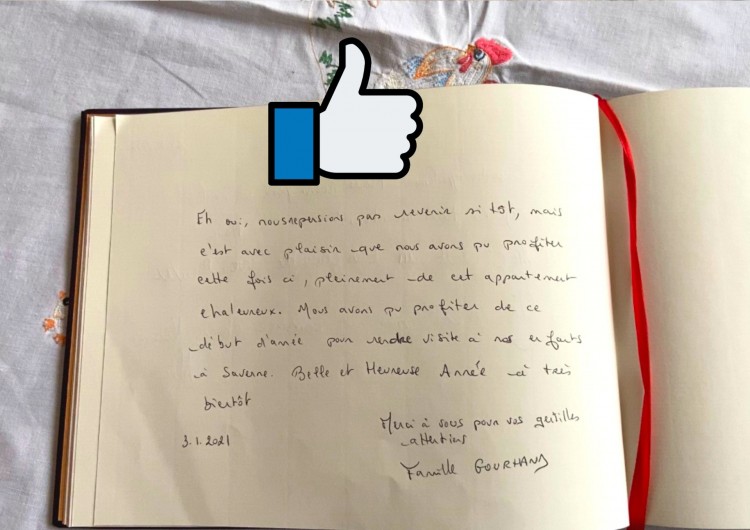 Eh oui, nous ne pensions pas revenir si tôt, mais
c'est avec plaisir que nous avons pu profiter
cette fois ci, pleinement de cet appartement
chaleureux. Nous avons pu profiter de ce
début d'année pour rendre visite à nos enfants
à Saverne. Belle et Heureuse Année à très
bientôt
Merci à vous pour vos gentilles
attentions
3.1.2021
Famille